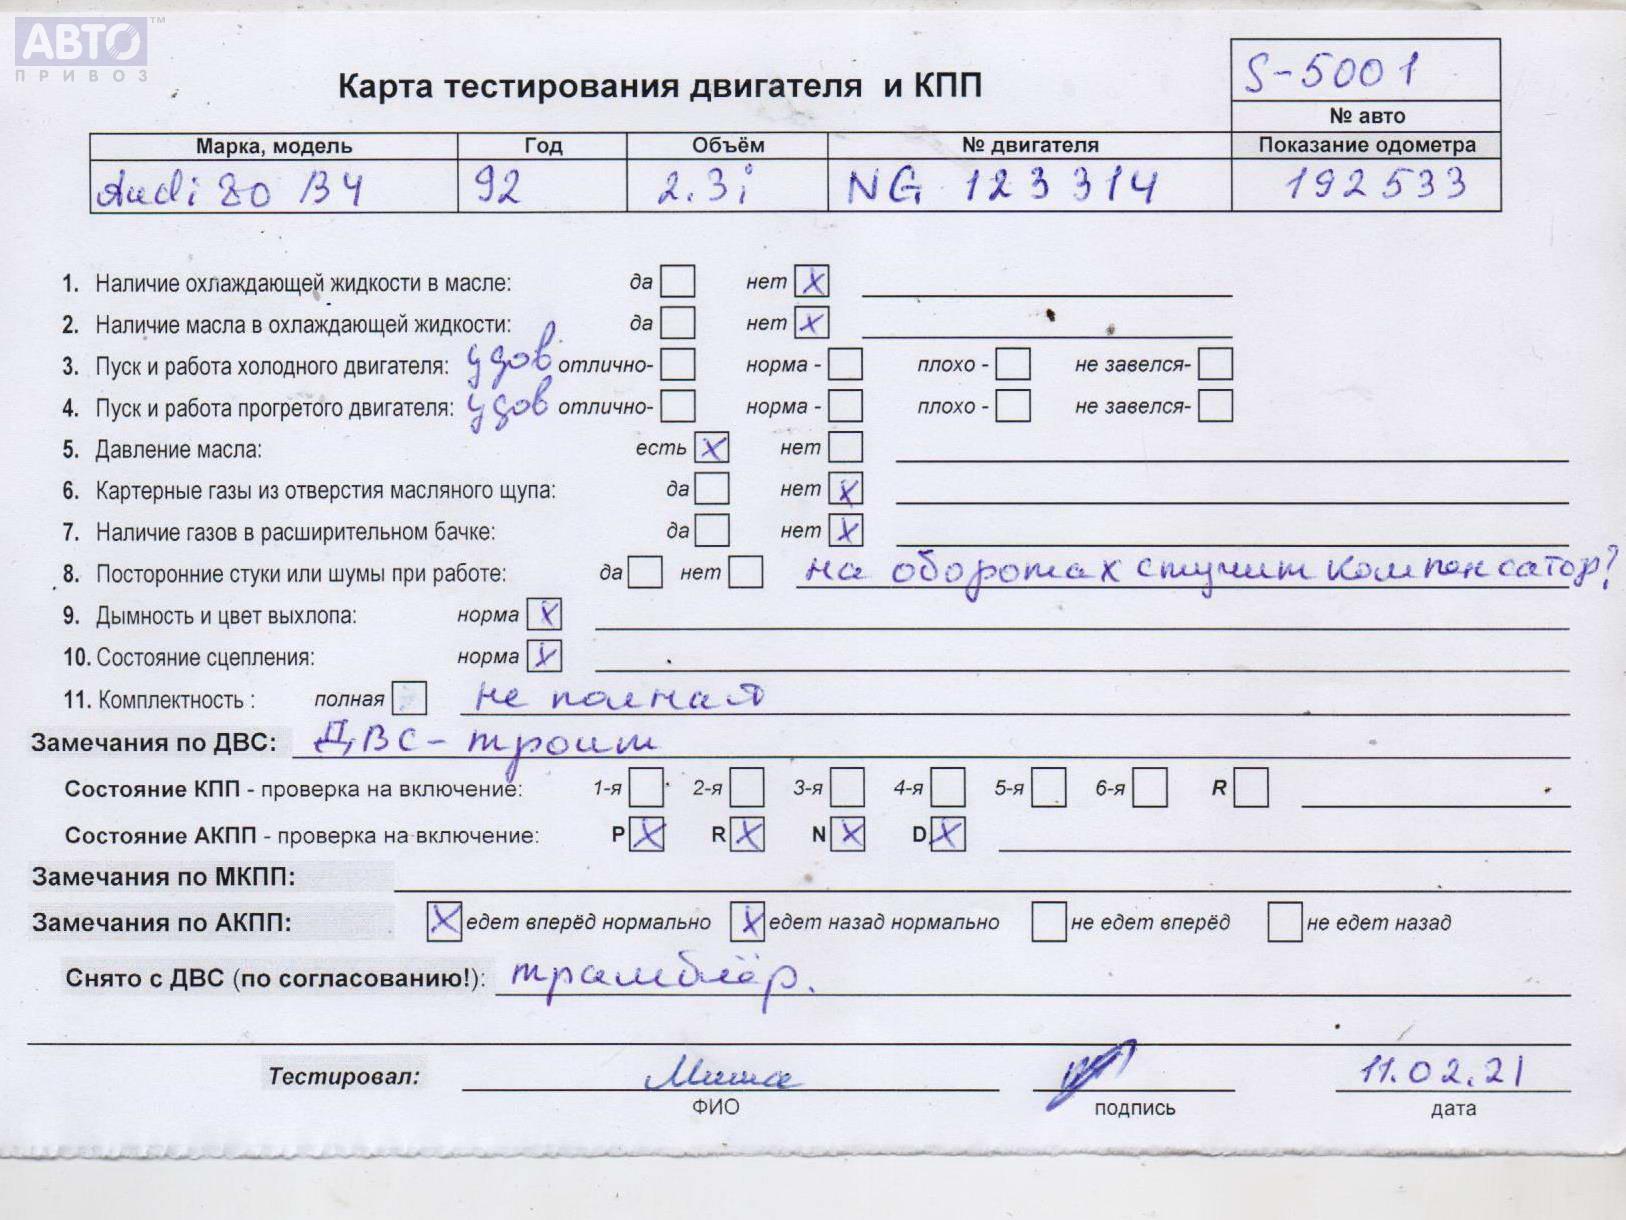 АВТО™
ПРИВОЗ
S-5001
Карта тестирования двигателя и КПП
№ авто
Марка, модель Год Объём № двигателя Показание одометра
Audi 80 B4 92 2.3i NG 123314 192533
1. Наличие охлаждающей жидкости в масле: да нет X
2. Наличие масла в охлаждающей жидкости: да нет X
3. Пуск и работа холодного двигателя: удов отлично- норма - плохо - не завелся-
4. Пуск и работа прогретого двигателя: удов отлично- норма - плохо - не завелся-
5. Давление масла: есть X нет
6. Картерные газы из отверстия масляного щупа: да нет X
7. Наличие газов в расширительном бачке: да нет X
8. Посторонние стуки или шумы при работе: да нет на оборотах стучит компенсатор?
9. Дымность и цвет выхлопа: норма X
10. Состояние сцепления: норма X
11. Комплектность : полная не полная
Замечания по ДВС: ДВС - троит
Состояние КПП - проверка на включение: 1-я 2-я 3-я 4-я 5-я 6-я R
Состояние АКПП - проверка на включение: P X R X N X D X
Замечания по МКПП:
Замечания по АКПП: X едет вперёд нормально X едет назад нормально не едет вперёд не едет назад
Снято с ДВС (по согласованию!): трамблёр.
Тестировал: Миша 11.02.21
ФИО подпись дата